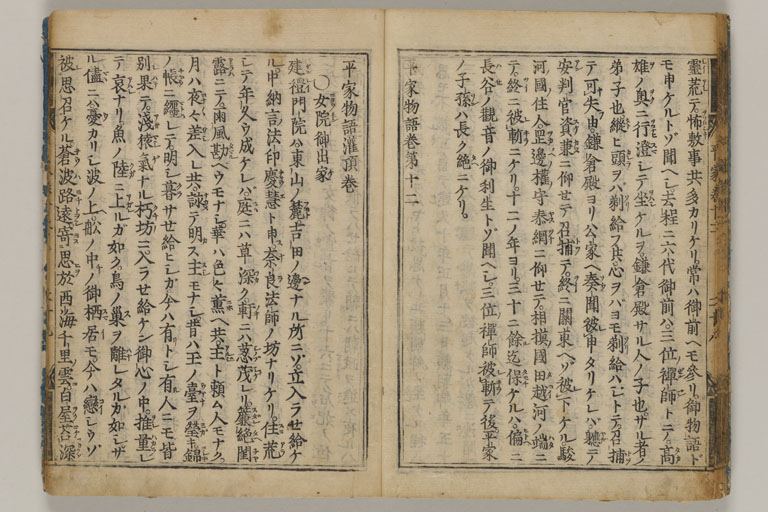 靈荒テ怖敷事共多カリケリ。常ハ御前ヘモ參リ御物語ド
モ申ケルトゾ聞ヘシ去程ニ六代御前ハ三位禪師トテ。高
雄ノ奥ニ行澄シテ坐ケルヲ。鎌倉殿サル人ノ子也。サル者ノ
弟子也縱ヒ頭ヲバ剃給フ共。心ヲバヨモ剃給ハジトテ。召捕
テ可失由。鎌倉殿ヨリ公家ヘ奏聞被申タリケレバ聽テ
安判官資兼ニ仰セテ召捕テ。終ニ關東ヘゾ被下ケル駿
河國住人 邊權守泰綱ニ仰セテ。相摸國田越河ノ端ニ
テ。終ニ被斬ニケリ。十二ノ年ヨリ三十ニ餘迄保ケルハ。偏ニ
長谷ノ觀音ノ御利生トゾ聞ヘシ。三位禪師被斬テ後平家
ノ子孫ハ長ク絶ニケリ。
平家物語卷第十二
平家物語灌頂卷
○女院御出家
建禮門院ハ東山ノ麓吉田ノ邊ナル所ニゾ。立入ラセ給ケ
ル中納言法印慶慧ト申奈良法師ノ坊ナリケリ。住荒
シテ年久ウ成ケレバ。庭ニハ草深ク軒ニハ葱茂レリ。簾絶閨
露ニテ雨風勘ベウモナシ。華ハ色々薫ヘ共。主ト頼ム人モナク。
月ハ夜々差入レ共。詠テ明ス主モナシ。昔ハ玉ノ臺ヲ 錦
ノ帳ニ纏レテ明シ暮サセ給ヒシガ今ハ有トシ有人ニモ皆
別果テ。淺猿氣ナル朽坊ニ入ラセ給ケン御心ノ中。推量レ
テ哀ナリ。魚ノ陸ニ上ルガ如ク。鳥ノ巣ヲ離レタルガ如シ。サ
ル儘ニハ憂カリシ波ノ上舩ノ中ノ御栖居モ今ハ戀シウゾ
被思召ケル蒼波路遠寄思於西海千里雲白屋苔深